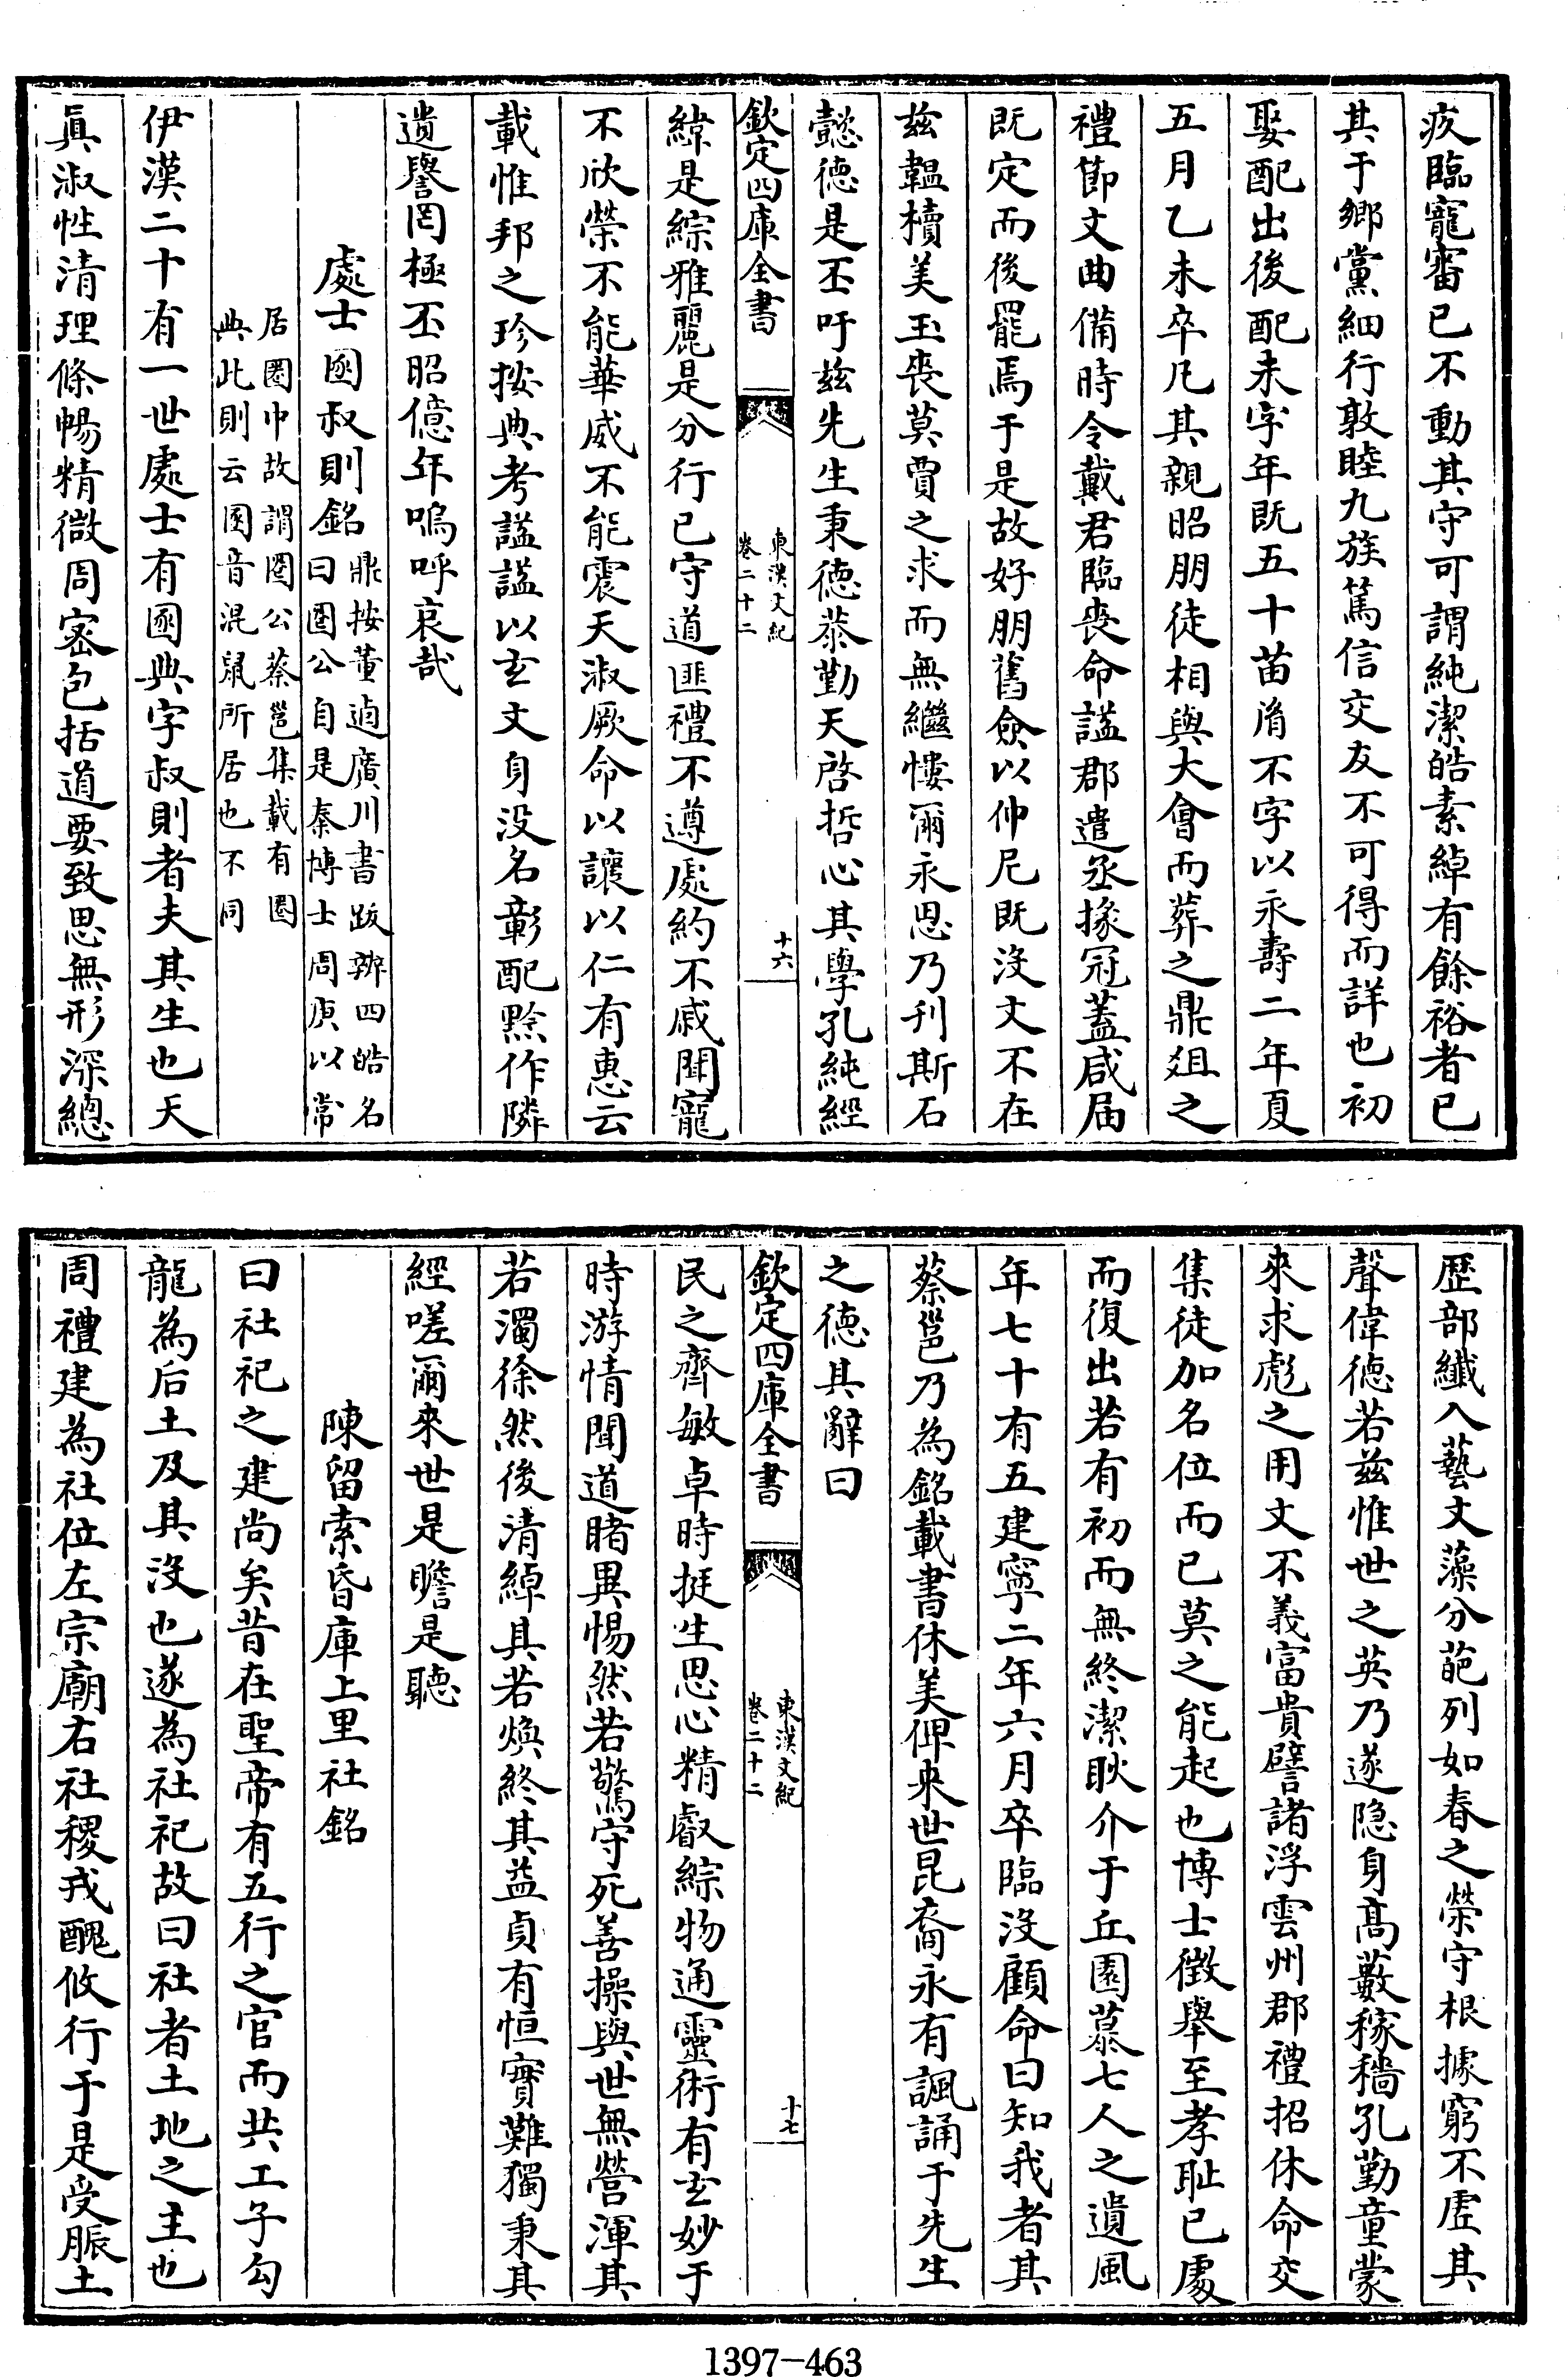 疚臨寵審已不動其守可謂純潔皓素綽有餘裕者已
其于鄉黨細行敦睦九族篤信交友不可得而詳也初
娶配出後配未字年既五十苗胤不字以永壽二年夏
五月乙未卒凡其親昭朋徒相與大會而葬之鼎俎之
禮節文曲備時令戴君臨喪命諡郡遣丞掾冠蓋咸届
既定而後罷焉于是故好朋舊僉以仲尼既没文不在
兹韞櫝美玉喪莫賈之求而無繼悽爾永思乃刋斯石
懿德是丕吁兹先生秉德恭勤天啓哲心其學孔純經
欽定四庫全書
東漢文紀
卷二十二
十六
緯是綜雅麗是分行已守道匪禮不遵處約不戚聞寵
不欣榮不能華威不能震天淑厥命以讓以仁有惠云
載惟邦之珍按典考諡諡以玄文身没名彰配黔作隣
遺譽罔極丕昭億年嗚呼哀哉
處士圂叔則銘
鼎按董逌廣川書跋辨四皓名
曰圈公自是秦博士周庾以常
居圈巾故謂圈公蔡邕集載有圈
典此則云圂音混鼠所居也不同
伊漢二十有一世處士有圂典字叔則者夫其生也天
真淑性清理條暢精微周密包括道要致思無形深總
歴部纎入藝文藻分葩列如春之榮守根據窮不虚其
聲偉德若兹惟世之英乃遂隐身高藪稼穡孔勤童蒙
來求彪之用文不義富貴譬諸浮雲州郡禮招休命交
集徒加名位而已莫之能起也博士徵舉至孝耻已處
而復出若有初而無終潔耿介于丘園慕七人之遺風
年七十有五建寧二年六月卒臨没顧命曰知我者其
蔡邕乃為銘載書休美俾來世昆裔永有諷誦于先生
之德其辭曰
欽定四庫全書
東漢文紀
卷二十二
十七
民之齊敏卓時挺生思心精叡綜物通靈術有玄妙于
時游情聞道睹異惕然若驚守死善操與世無營渾其
若濁徐然後清綽其若煥終其益貞有恒實難獨秉其
經嗟爾來世是瞻是聽
陳留索昏庫上里社銘
曰社祀之建尚矣昔在聖帝有五行之官而共工子勾
龍為后土及其没也遂為社祀故曰社者土地之主也
周禮建為社位左宗廟右社稷戎醜攸行于是受脤土
1397-463